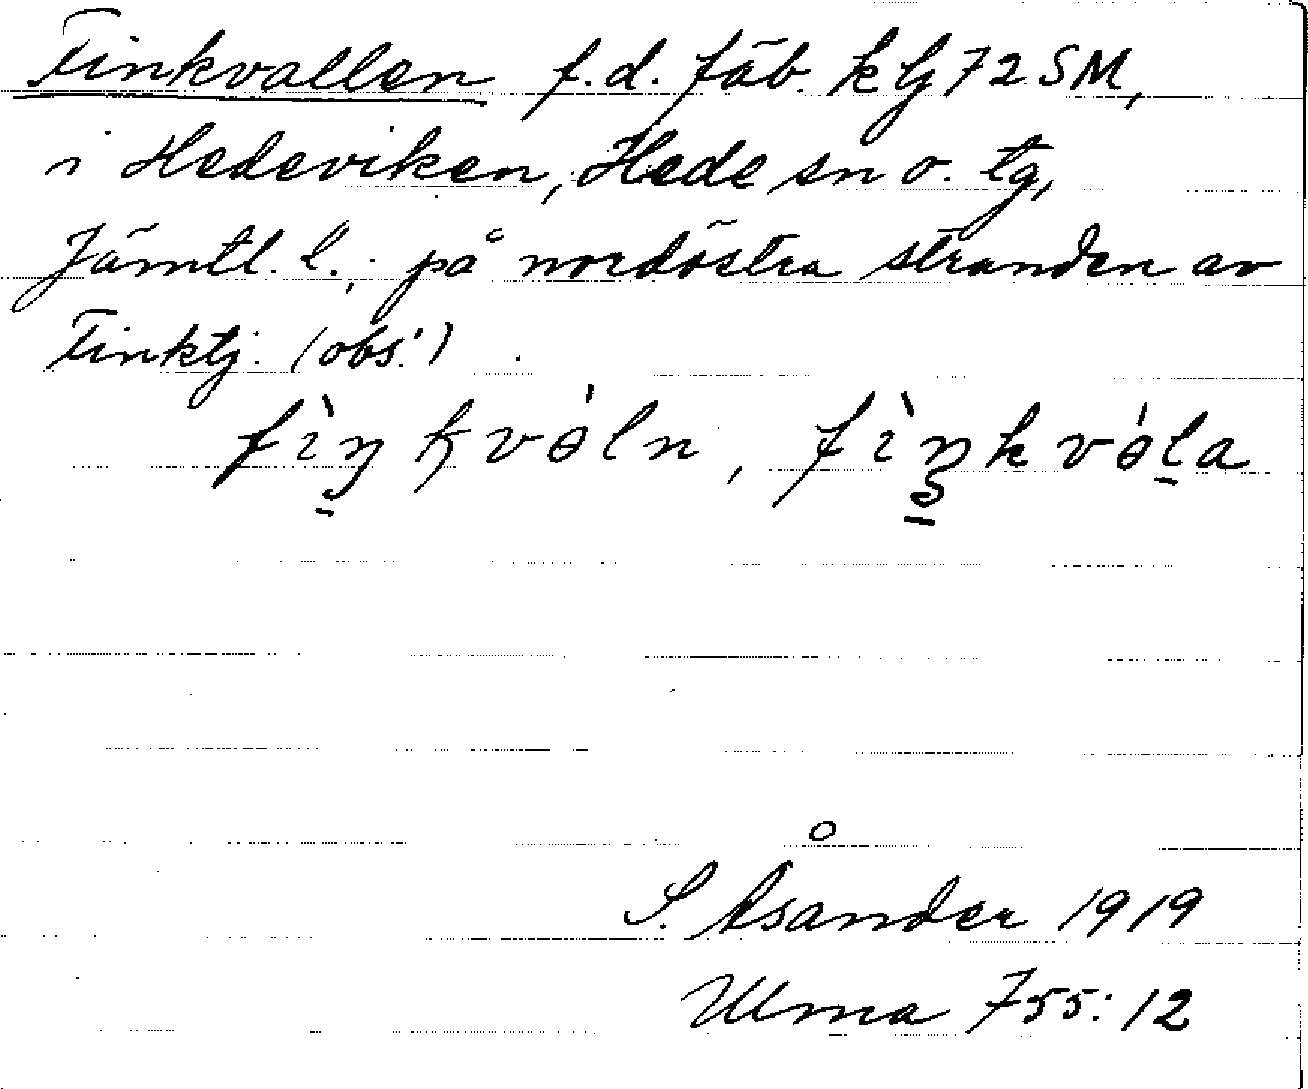 Finkvallen f.d. fäb. k lj 72 SM,
i Hedeviken, Hede sn o. tg,
Jämtl. l., på nordöstra stranden av
Finktj. (obs!)
fìŋkvóln, fìŋkvóla
S. Åsander 1919
Ulma 755:12